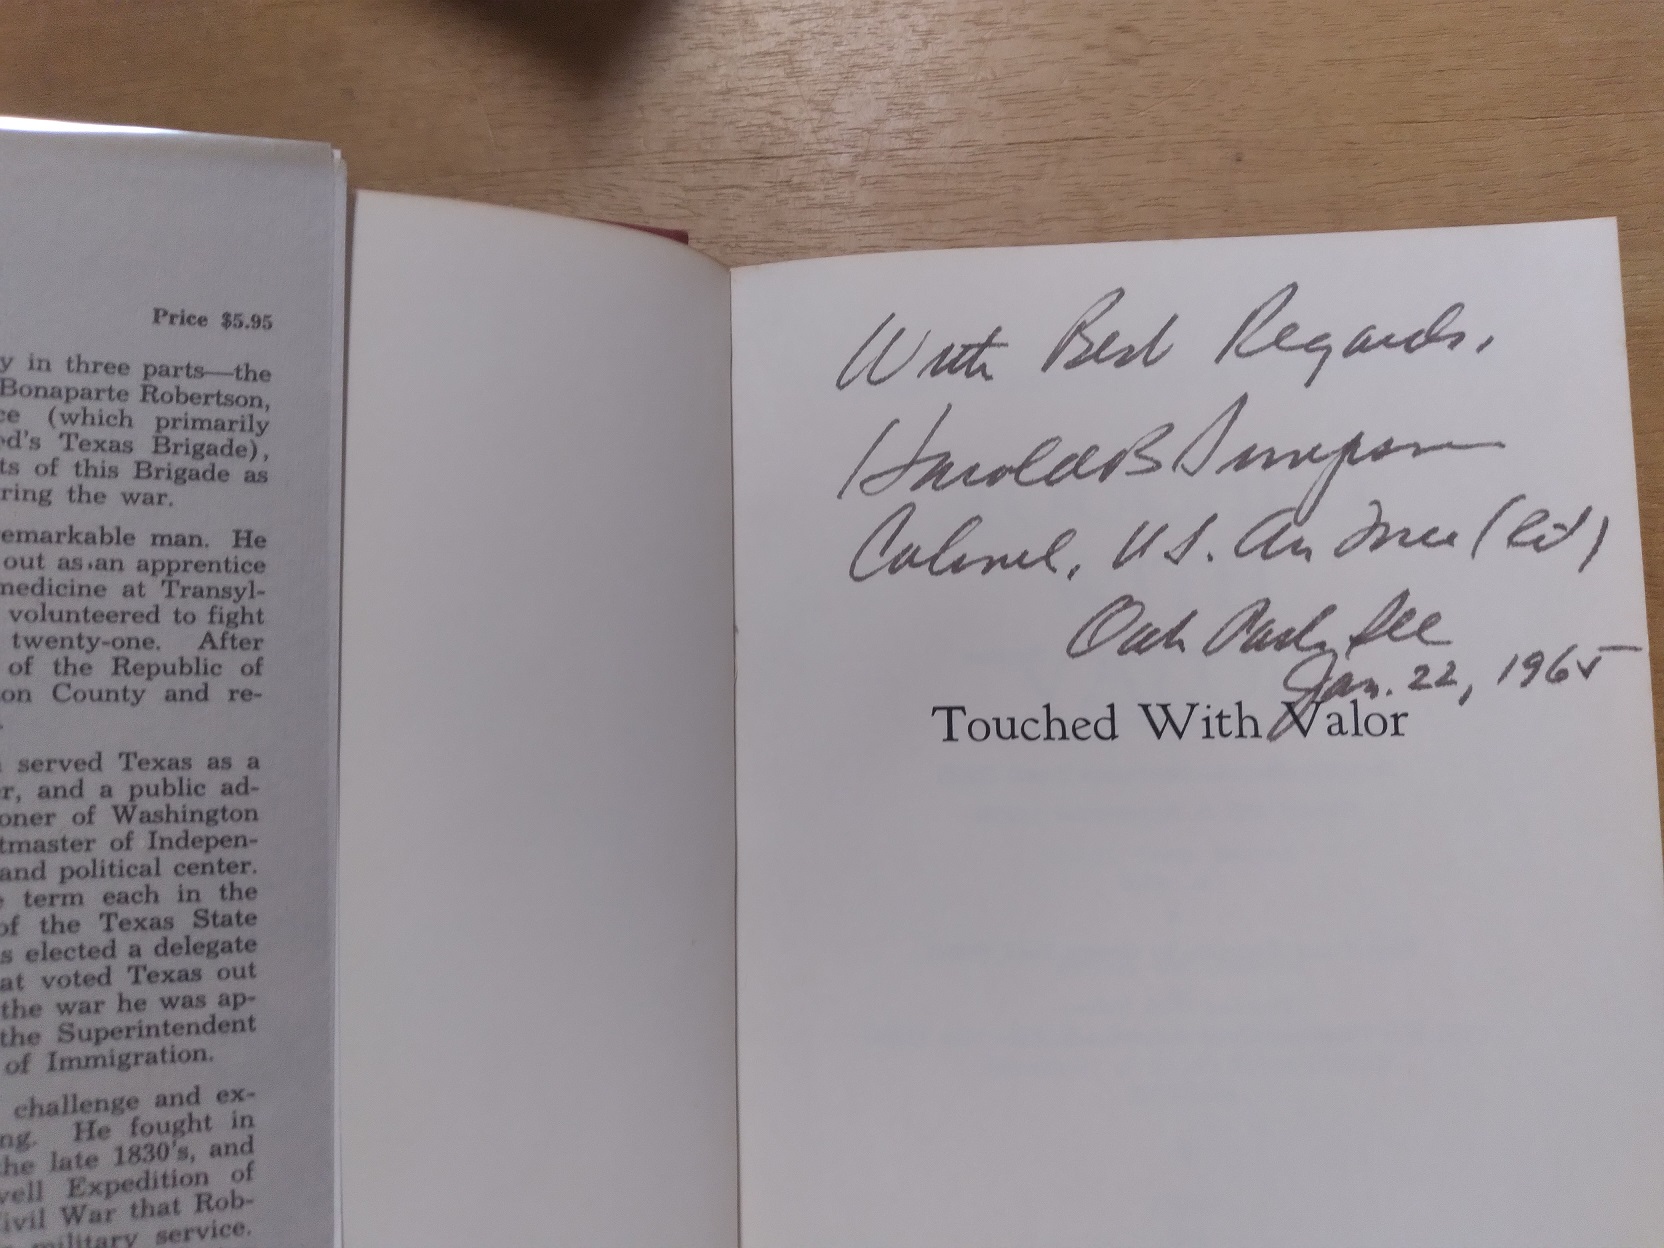 Price $5.95
y in three parts—the
Bonaparte Robertson,
ce (which primarily
od's Texas Brigade),
ts of this Brigade as
ring the war.
emarkable man. He
out as an apprentice
medicine at Transyl-
volunteered to fight
twenty-one. After
of the Republic of
on County and re-
served Texas as a
r, and a public ad-
oner of Washington
tmaster of Indepen-
and political center.
e term each in the
of the Texas State
s elected a delegate
at voted Texas out
the war he was ap-
the Superintendent
of Immigration.
challenge and ex-
ng. He fought in
he late 1830's, and
well Expedition of
ivil War that Rob-
military service.
With Best Regards,
Harold B Simpson
Colonel, U.S. Air Force (Ret)
Oak Park, Ill
Jan. 22, 1965
Touched With Valor